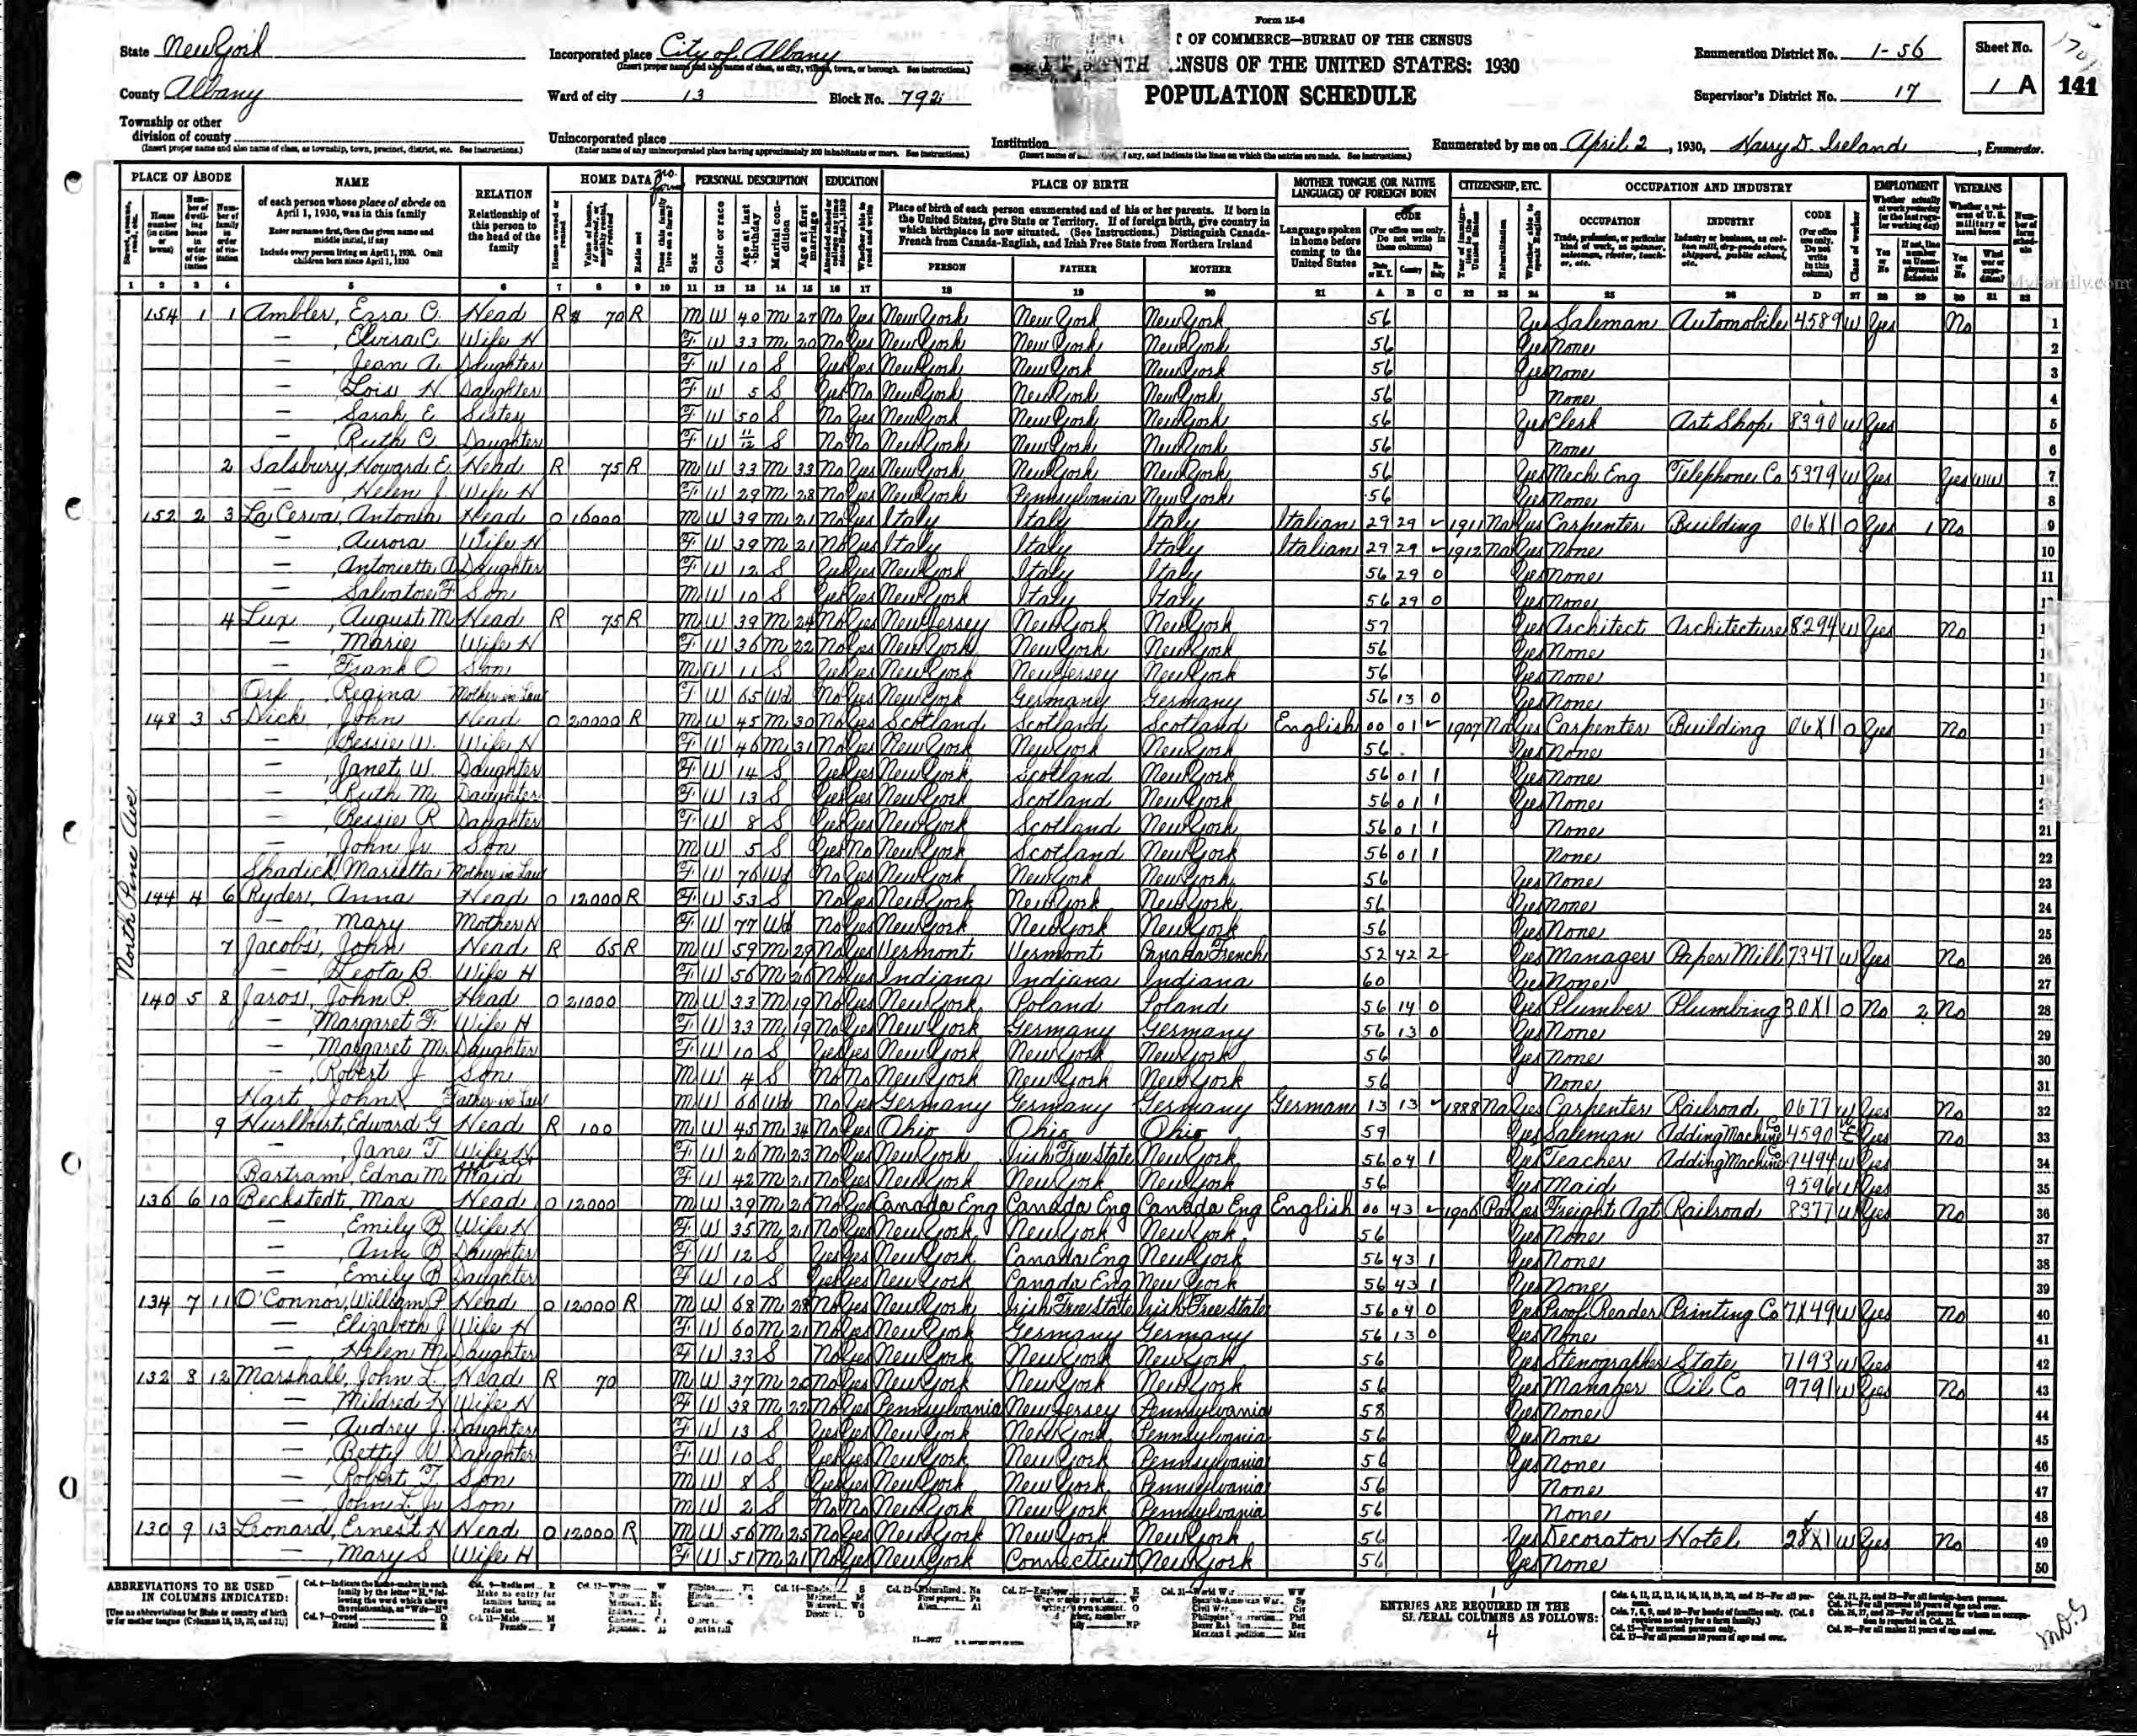 Form 15-6
State New York
Incorporated place City of Albany
(Insert proper name and also name of class, as city, village, town, or borough. See instructions.)
T OF COMMERCE—BUREAU OF THE CENSUS
CENSUS OF THE UNITED STATES: 1930
POPULATION SCHEDULE
Enumeration District No. 1-56
Sheet No.
1 A
141
County Albany
Ward of city 13 Block No. 792
Supervisor's District No. 17
Township or other division of county
(Insert proper name and also name of class, as township, town, precinct, district, etc. See instructions.)
Unincorporated place
(Enter name of any unincorporated place having approximately 500 inhabitants or more. See instructions.)
Institution
Enumerated by me on April 2, 1930, Harry D. Ireland, Enumerator.
PLACE OF ABODE NAME RELATION HOME DATA PERSONAL DESCRIPTION EDUCATION PLACE OF BIRTH MOTHER TONGUE (OR NATIVE LANGUAGE) OF FOREIGN BORN CITIZENSHIP, ETC. OCCUPATION AND INDUSTRY EMPLOYMENT VETERANS
of each person whose place of abode on April 1, 1930, was in this family
Enter surname first, then the given name and middle initial, if any
Include every person living on April 1, 1930. Omit children born since April 1, 1930
Relationship of this person to the head of the family
Place of birth of each person enumerated and of his or her parents. If born in the United States, give State or Territory. If of foreign birth, give country in which birthplace is now situated. (See Instructions.) Distinguish Canada-French from Canada-English, and Irish Free State from Northern Ireland
PERSON FATHER MOTHER
Language spoken in home before coming to the United States
OCCUPATION INDUSTRY CODE
MyFamily.com
North Pine Ave
154 1 1 Ambler, Ezra C. Head R $ 70 R M W 40 M 27 No Yes New York New York New York 56 Yes Saleman Automobile 4589 W Yes No 1
— , Elvira C. Wife H F W 33 M 20 No Yes New York New York New York 56 Yes None 2
— , Jean A. Daughter F W 10 S Yes Yes New York New York New York 56 Yes None 3
— Lois H. Daughter F W 5 S Yes No New York New York New York 56 None 4
— Sarah E. Sister F W 50 S No Yes New York New York New York 56 Yes Clerk Art Shop 8390 W Yes 5
— Ruth C. Daughter F W 11/12 S No No New York New York New York 56 None 6
2 Salsbury, Howard E. Head R 75 R M W 33 M 33 No Yes New York New York New York 56 Yes Mech Eng Telephone Co 5379 W Yes Yes WW 7
— , Helen J. Wife H F W 29 M 28 No Yes New York Pennsylvania New York 56 Yes None 8
152 2 3 La Cerva, Antonia Head O 16000 M W 39 M 21 No Yes Italy Italy Italy Italian 29 29 ✓ 1911 Na Yes Carpenter Building 06X1 O Yes 1 No 9
— , Aurora Wife H F W 39 M 21 No Yes Italy Italy Italy Italian 29 29 ✓ 1912 Na Yes None 10
— , Antoniette A Daughter F W 12 S Yes Yes New York Italy Italy 56 29 0 Yes None 11
— , Salvatore F Son M W 10 S Yes Yes New York Italy Italy 56 29 0 Yes None
4 Lux, August M Head R 75 R M W 39 M 24 No Yes New Jersey New York New York 57 Yes Architect Architecture 8294 W Yes No
— Marie Wife H F W 36 M 22 No Yes New York New York New York 56 Yes None
— Frank O Son M W 11 S Yes Yes New York New Jersey New York 56 Yes None
Orf Regina Mother in Law F W 65 Wd No Yes New York Germany Germany 56 13 0 Yes None
148 3 5 Dick, John Head O 20000 R M W 45 M 30 No Yes Scotland Scotland Scotland English 00 01 ✓ 1907 Na Yes Carpenter Building 06X1 O Yes No
— Bessie W. Wife H F W 46 M 31 No Yes New York New York New York 56 Yes None
— , Janet W. Daughter F W 14 S Yes Yes New York Scotland New York 56 01 1 Yes None
— , Ruth M. Daughter F W 13 S Yes Yes New York Scotland New York 56 01 1 Yes None
— , Bessie R Daughter F W 8 S Yes Yes New York Scotland New York 56 01 1 None 21
— , John Jr. Son M W 5 S Yes No New York Scotland New York 56 01 1 None 22
Shadick, Marietta Mother in Law F W 76 Wd No Yes New York New York New York 56 Yes None 23
144 4 6 Ryder, Anna Head O 12000 R F W 53 S No Yes New York New York New York 56 Yes None 24
— Mary Mother H F W 77 Wd No Yes New York New York New York 56 Yes None 25
7 Jacobs, John Head R 65 R M W 59 M 29 No Yes Vermont Vermont Canada French 52 42 2 Yes Manager Paper Mill 7347 W Yes No 26
— , Leota B. Wife H F W 56 M 26 No Yes Indiana Indiana Indiana 60 Yes None 27
140 5 8 Jaros, John P. Head O 21000 M W 33 M 19 No Yes New York Poland Poland 56 14 0 Yes Plumber Plumbing 30X1 O No 2 No 28
— Margaret F. Wife H F W 33 M 19 No Yes New York Germany Germany 56 13 0 Yes None 29
— Margaret M. Daughter F W 10 S Yes Yes New York New York New York 56 Yes None 30
— , Robert J Son M W 4 S No No New York New York New York 56 None 31
Hart, John Father in Law M W 66 Wd No Yes Germany Germany Germany German 13 13 ✓ 1888 Na Yes Carpenter Railroad 0677 W Yes No 32
9 Hurlburt, Edward G Head R 100 M W 45 M 34 No Yes Ohio Ohio Ohio 59 Yes Saleman Adding Machine Co 4590 Yes No 33
— , Jane T Wife H F W 26 M 23 No Yes New York Irish Free State New York 56 04 1 Yes Teacher Adding Machine Co 9494 W Yes 34
Bartram, Edna M Maid F W 42 M 21 No Yes New York New York New York 56 Yes Maid 9596 W Yes 35
136 6 10 Beckstedt, Max Head O 12000 M W 39 M 26 No Yes Canada Eng Canada Eng Canada Eng English 00 43 ✓ 1906 Pa Yes Freight Agt Railroad 8377 W Yes No 36
— , Emily B Wife H F W 35 M 21 No Yes New York New York New York 56 Yes None 37
— , Amy B Daughter F W 12 S Yes Yes New York Canada Eng New York 56 43 1 Yes None 38
— Emily B Daughter F W 10 S Yes Yes New York Canada Eng New York 56 43 1 Yes None 39
134 7 11 O'Connor, William P. Head O 12000 R M W 68 M 28 No Yes New York Irish Free State Irish Free State 56 04 0 Yes Proof Reader Printing Co 7X49 W Yes No 40
— Elizabeth J Wife H F W 60 M 21 No Yes New York Germany Germany 56 13 0 Yes None 41
— Helen M Daughter F W 33 S No Yes New York New York New York 56 Yes Stenographer State 7193 W Yes 42
132 8 12 Marshall, John L. Head R 70 M W 37 M 20 No Yes New York New York New York 56 Yes Manager Oil Co 9791 W Yes No 43
— Mildred H Wife H F W 38 M 22 No Yes Pennsylvania New Jersey Pennsylvania 58 Yes None 44
— Audrey J. Daughter F W 13 S Yes Yes New York New York Pennsylvania 56 Yes None 45
— Betty W Daughter F W 10 S Yes Yes New York New York Pennsylvania 56 Yes None 46
— Robert F. Son M W 8 S Yes Yes New York New York Pennsylvania 56 None 47
— John L. Jr Son M W 2 S No No New York New York Pennsylvania 56 None 48
130 9 13 Leonard, Ernest H Head O 12000 R M W 56 M 25 No Yes New York New York New York 56 Yes Decorator Hotel 28X1 W Yes No 49
— Mary S Wife H F W 51 M 21 No Yes New York Connecticut New York 56 Yes None 50
ABBREVIATIONS TO BE USED IN COLUMNS INDICATED:
ENTRIES ARE REQUIRED IN THE SEVERAL COLUMNS AS FOLLOWS: